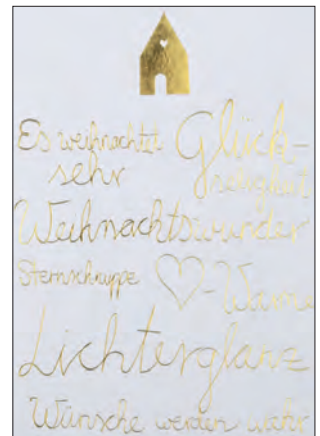 Es weihnachtet Glück-
sehr seligkeit
Weihnachtswunder
Sternschnuppe
Lichterglanz
Wünsche werden wahr